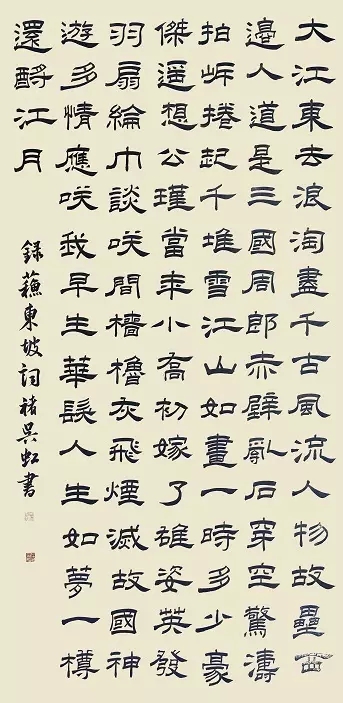 大江東去浪淘盡千古風流人物故壘西
邊人道是三國周郎赤壁亂石穿空驚濤
拍岸捲起千堆雪江山如畫一時多少豪
傑遥想公瑾當年小喬初嫁了雄姿英發
羽扇綸巾談咲間檣櫓灰飛煙滅故國神
遊多情應咲我早生華髮人生如夢一樽
還酹江月
録蘓東坡詞褚吳虹書